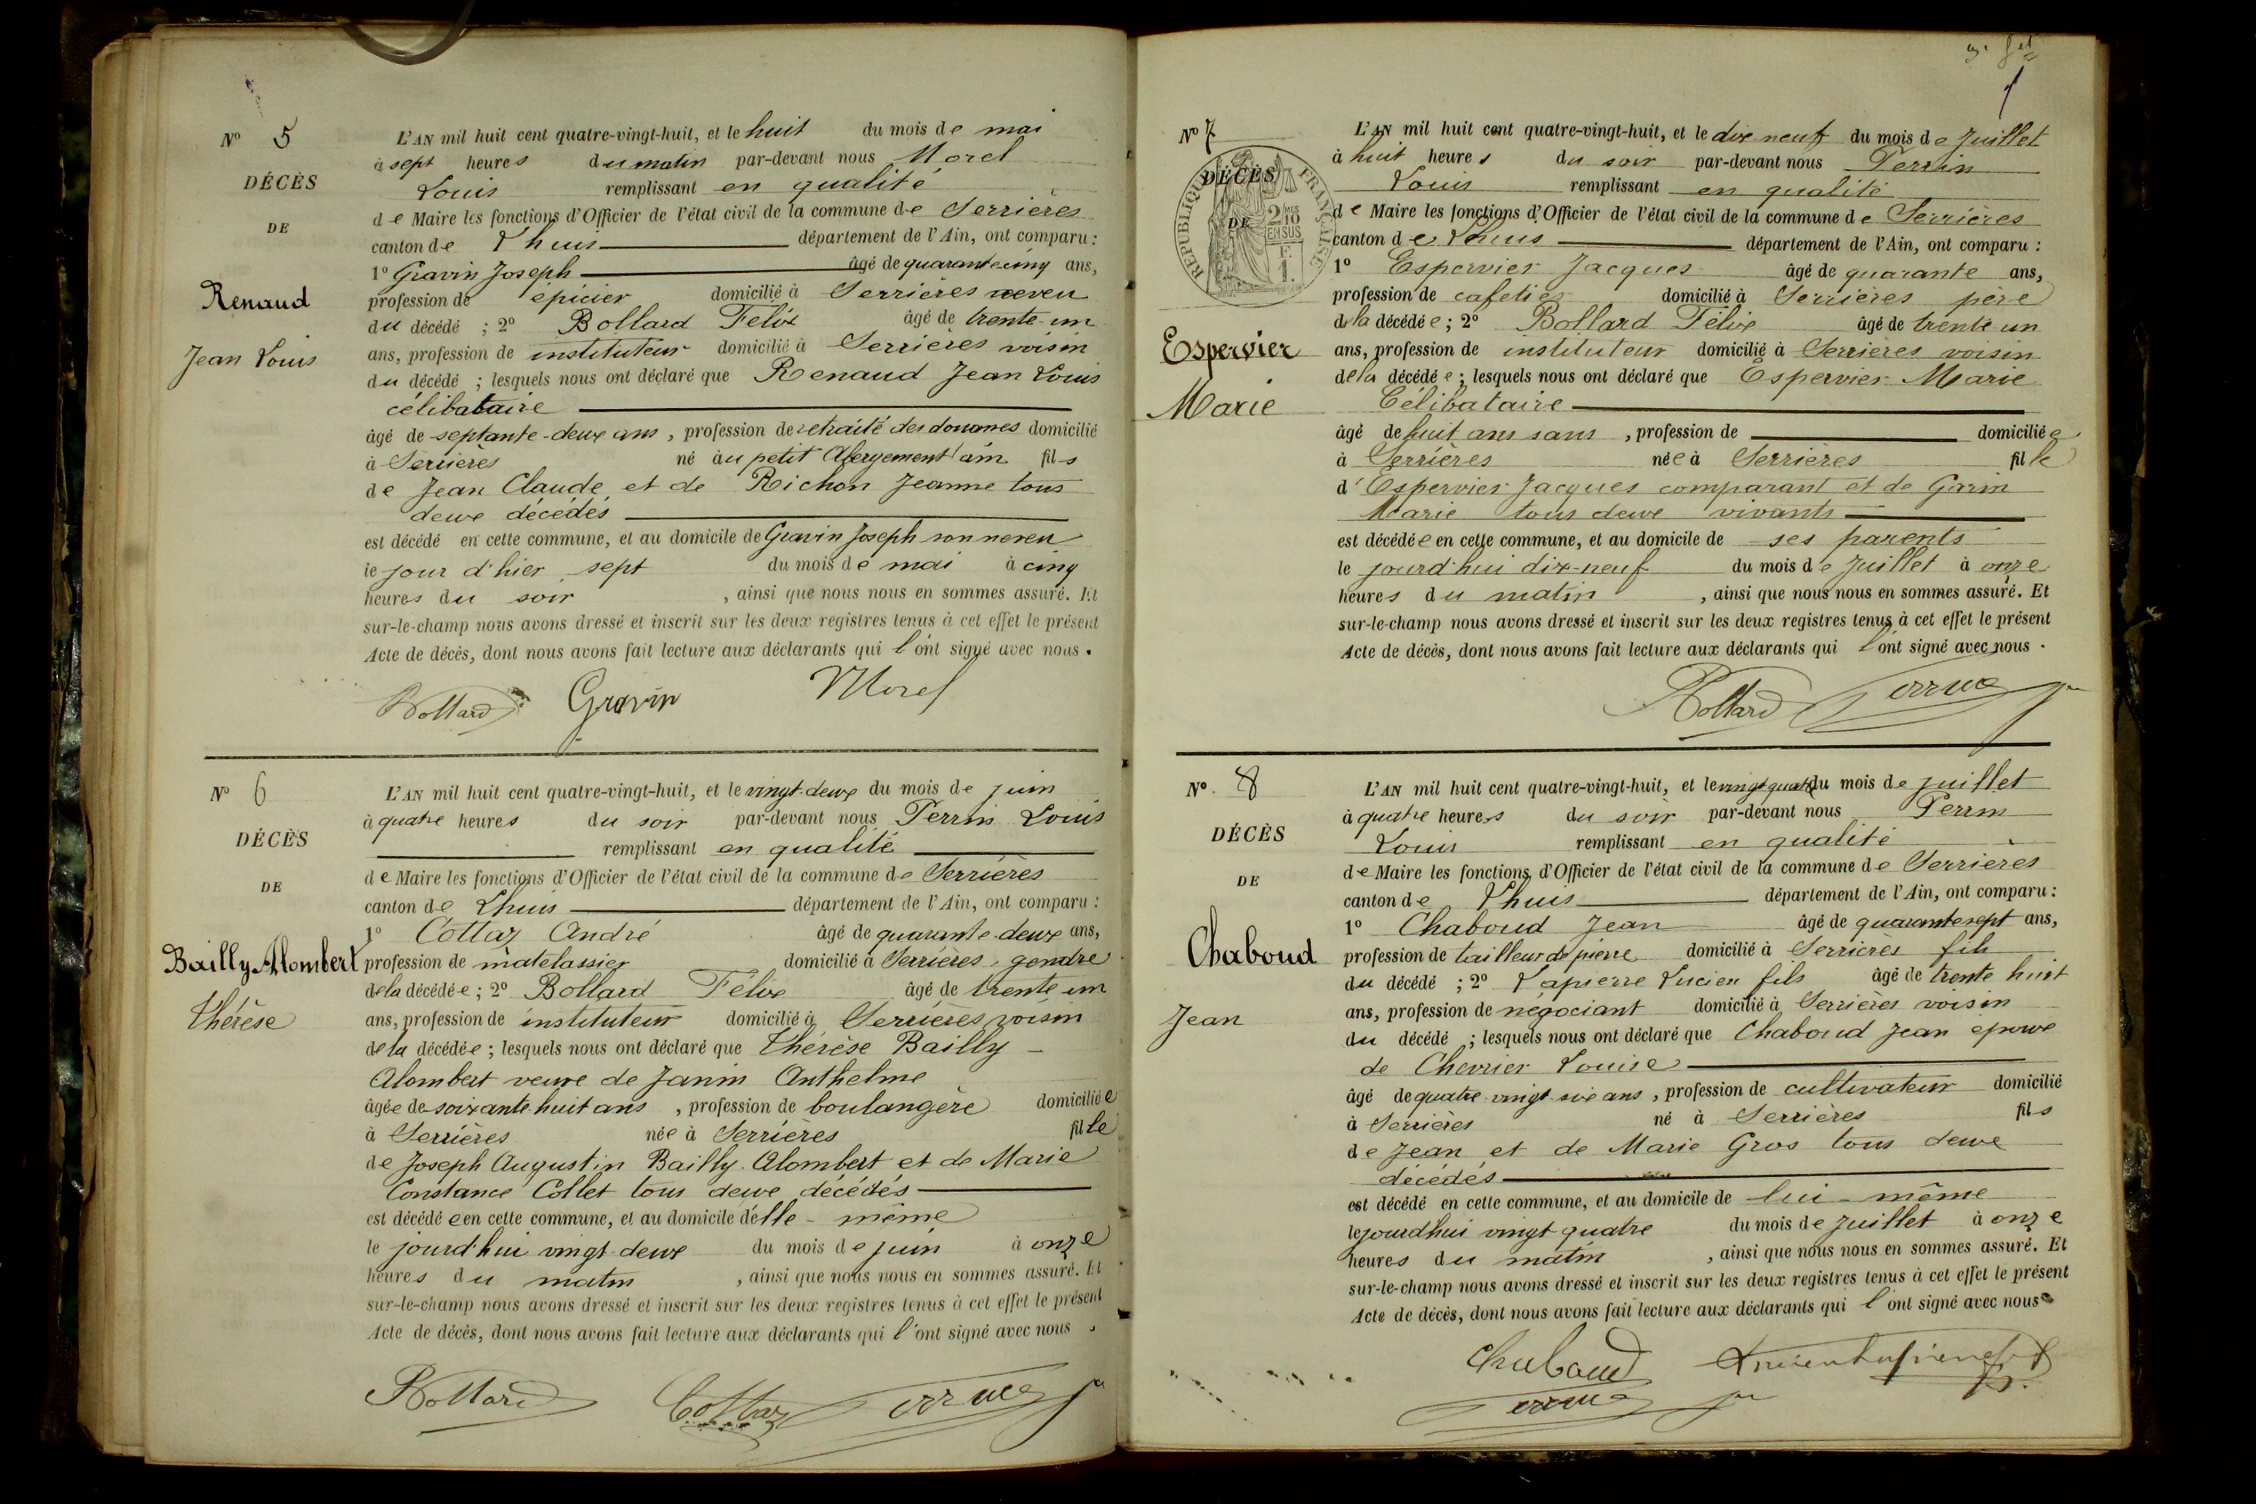 Nº 5
DÉCÈS
DE
Renaud
Jean Louis
L'AN mil huit cent quatre-vingt-huit, et le huit du mois de mai
à sept heures du matin par-devant nous Morel
Louis remplissant en qualité
de Maire les fonctions d'Officier de l'état civil de la commune de Serrières
canton de Lhuis département de l'Ain, ont comparu :
1º Gravin Joseph âgé de quarante cinq ans,
profession de épicier domicilié à Serrières neveu
du décédé ; 2º Bollard Félix âgé de trente-un
ans, profession de instituteur domicilié à Serrières voisin
du décédé ; lesquels nous ont déclaré que Renaud Jean Louis
célibataire
âgé de septante-deux ans, profession de retraité des douanes domicilié
à Serrières né au petit Abergement ain fils
de Jean Claude et de Richon Jeanne tous
deux décédés
est décédé en cette commune, et au domicile de Gravin Joseph son neveu
le jour d'hier sept du mois de mai à cinq
heures du soir, ainsi que nous nous en sommes assuré. Et
sur-le-champ nous avons dressé et inscrit sur les deux registres tenus à cet effet le présent
Acte de décès, dont nous avons fait lecture aux déclarants qui l'ont signé avec nous.
Bollard Gravin Morel
Nº 6
DÉCÈS
DE
Bailly Alombert
Thérèse
L'AN mil huit cent quatre-vingt-huit, et le vingt-deux du mois de juin
à quatre heures du soir par-devant nous Perrin Louis
remplissant en qualité
de Maire les fonctions d'Officier de l'état civil de la commune de Serrières
canton de Lhuis département de l'Ain, ont comparu :
1º Cottaz André âgé de quarante-deux ans,
profession de matelassier domicilié à Serrières, gendre
de la décédée ; 2º Bollard Félix âgé de trente un
ans, profession de instituteur domicilié à Serrières voisin
de la décédée ; lesquels nous ont déclaré que Thérèse Bailly-
Alombert veuve de Janin Anthelme
âgée de soixante huit ans, profession de boulangère domiciliée
à Serrières née à Serrières fille
de Joseph Augustin Bailly-Alombert et de Marie
Constance Collet tous deux décédés
est décédée en cette commune, et au domicile d'elle-même
le jourd'hui vingt-deux du mois de juin à onze
heures du matin, ainsi que nous nous en sommes assuré. Et
sur-le-champ nous avons dressé et inscrit sur les deux registres tenus à cet effet le présent
Acte de décès, dont nous avons fait lecture aux déclarants qui l'ont signé avec nous.
Bollard Cottaz
Nº 7
DÉCÈS
DE
RÉPUBLIQUE FRANÇAISE
2/10 EN SUS
F. 1.
Espervier
Marie
L'AN mil huit cent quatre-vingt-huit, et le dix neuf du mois de Juillet
à huit heures du soir par-devant nous Perrin
Louis remplissant en qualité
de Maire les fonctions d'Officier de l'état civil de la commune de Serrières
canton de Lhuis département de l'Ain, ont comparu :
1º Espervier Jacques âgé de quarante ans,
profession de cafetier domicilié à Serrières père
de la décédée ; 2º Bollard Félix âgé de trente un
ans, profession de instituteur domicilié à Serrières voisin
de la décédée ; lesquels nous ont déclaré que Espervier Marie
Célibataire
âgé de huit ans sans, profession de domiciliée
à Serrières née à Serrières fille
d'Espervier Jacques comparant et de Garin
Marie tous deux vivants
est décédée en cette commune, et au domicile de ses parents
le jourd'hui dix-neuf du mois de Juillet à onze
heures du matin, ainsi que nous nous en sommes assuré. Et
sur-le-champ nous avons dressé et inscrit sur les deux registres tenus à cet effet le présent
Acte de décès, dont nous avons fait lecture aux déclarants qui l'ont signé avec nous.
Bollard
Nº 8
DÉCÈS
DE
Chaboud
Jean
L'AN mil huit cent quatre-vingt-huit, et le vingt quatre du mois de juillet
à quatre heures du soir par-devant nous Perrin
Louis remplissant en qualité
de Maire les fonctions d'Officier de l'état civil de la commune de Serrières
canton de Lhuis département de l'Ain, ont comparu :
1º Chaboud Jean âgé de quarante sept ans,
profession de tailleur de pierre domicilié à Serrières fils
du décédé ; 2º Lapierre Lucien fils âgé de trente huit
ans, profession de négociant domicilié à Serrières voisin
du décédé ; lesquels nous ont déclaré que Chaboud Jean époux
de Chevrier Louise
âgé de quatre-vingt six ans, profession de cultivateur domicilié
à Serrières né à Serrières fils
de Jean et de Marie Gros tous deux
décédés
est décédé en cette commune, et au domicile de lui-même
le jourd'hui vingt quatre du mois de Juillet à onze
heures du matin, ainsi que nous nous en sommes assuré. Et
sur-le-champ nous avons dressé et inscrit sur les deux registres tenus à cet effet le présent
Acte de décès, dont nous avons fait lecture aux déclarants qui l'ont signé avec nous
Chaboud